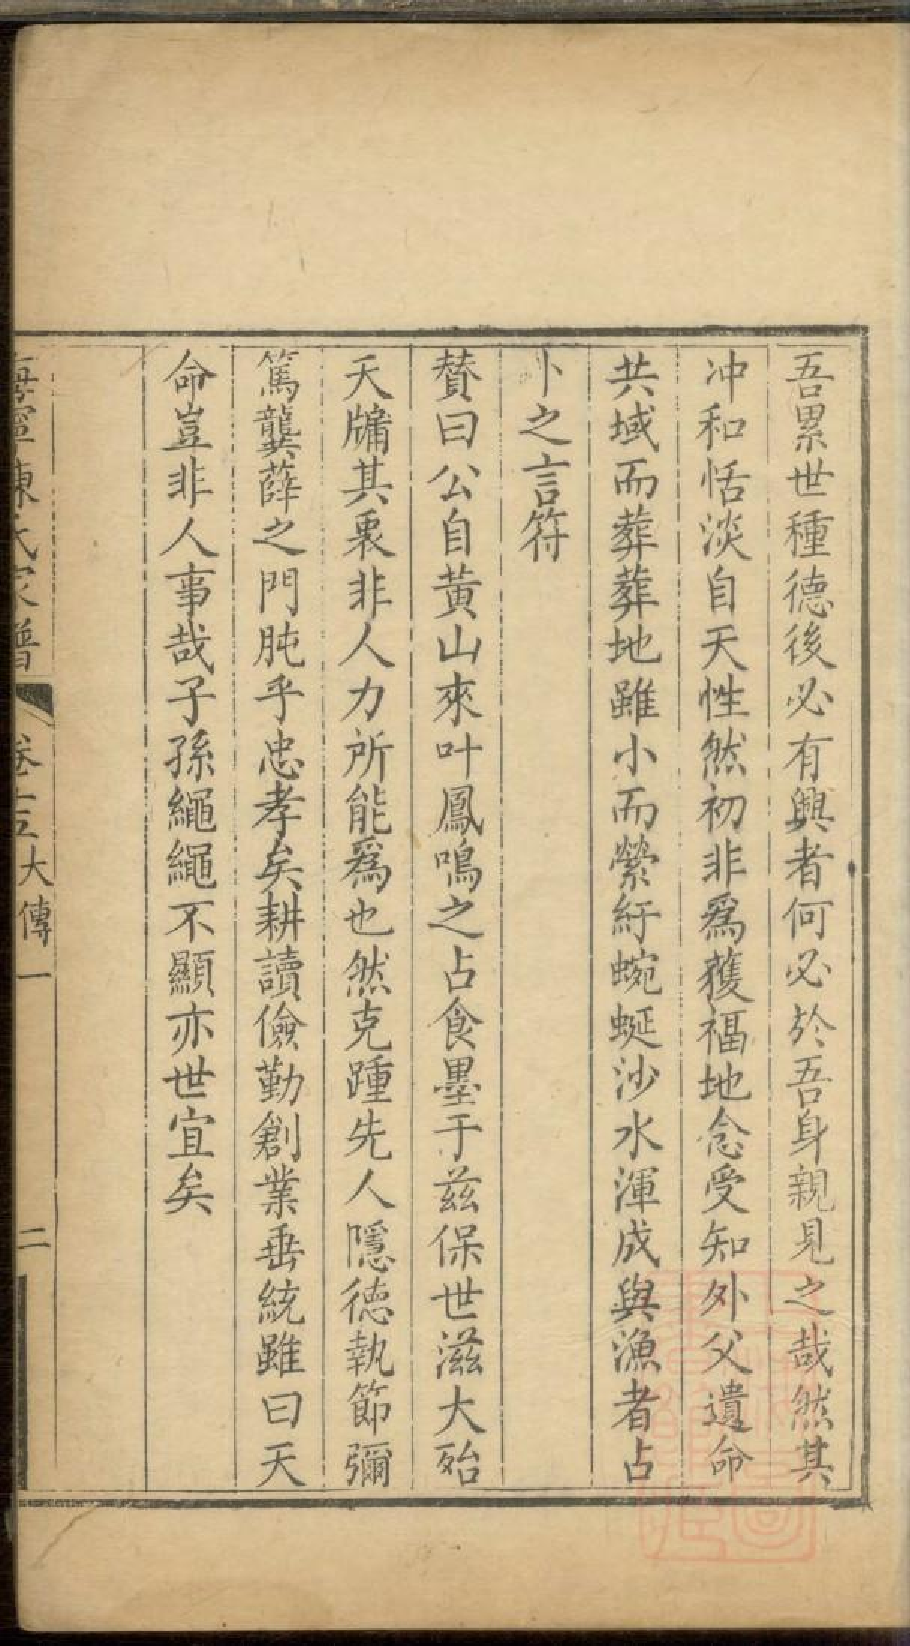 吾累世種德後必有興者何必於吾身親見之哉然其
冲和恬淡自天性然初非爲獲福地念受知外父遺命
共域而葬葬地雖小而縈紆蜿蜒沙水渾成與漁者占
卜之言符
贊曰公自黄山來叶鳳鳴之占食墨于兹保世滋大殆
天牖其衷非人力所能爲也然克踵先人隱德執節彌
篤龔薛之門肫乎忠孝矣耕讀儉勤創業垂統雖曰天
命豈非人事哉子孫繩繩不顯亦世宜矣
海寧陳氏家譜 卷十五大傳一 二